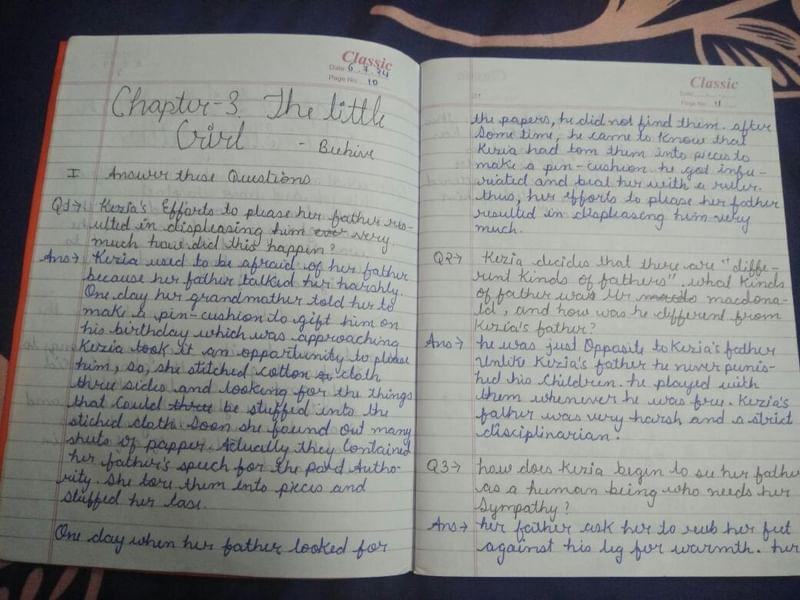 Classic
Date 6.7.24
Page No. 10
Chapter-3 The little
Girl
- Beehive
I Answer these Questions
Q1→ Kezia's Efforts to please her father res-
ulted in displeasing him very
much how did this happen?
Ans→ Kezia used to be afraid of her father
because her father talked her harshly.
One day her grandmother told her to
make a pin-cushion to gift him on
his birthday which was approaching
Kezia took it an opportunity to please
him, so, she stitched cotton cloth
three sides and looking for the things
that could be stuffed into the
stiched cloth. Soon she found out many
shets of papper. Actually they contained
her father's speech for the Autho-
rity. She tore them into pieces and
stuffed her case.
One day when her father looked for
Classic
Date
Page No. 11
the papers, he did not find them. after
Some time, he came to know that
Kezia had torn them into pieces to
make a pin-cushion he got infu-
riated and beat her with a ruler.
thus, her efforts to please her father
resulted in displeasing him very
much.
Q2→ Kezia decides that there are "diffe-
rent kinds of fathers". what kinds
of father was Mr macdona-
ld, and how was he different from
Kezia's father?
Ans→ he was just Opposite to Kezia's father
Unlike Kezia's father he never punis-
hed his children. he played with
them whenever he was free. Kezia's
father was very harsh and a strict
disciplinarian.
Q3→ how does Kezia begin to see her father
as a human being who needs her
Sympathy?
Ans→ her father ask her to rub her feet
against his leg for warmth. her